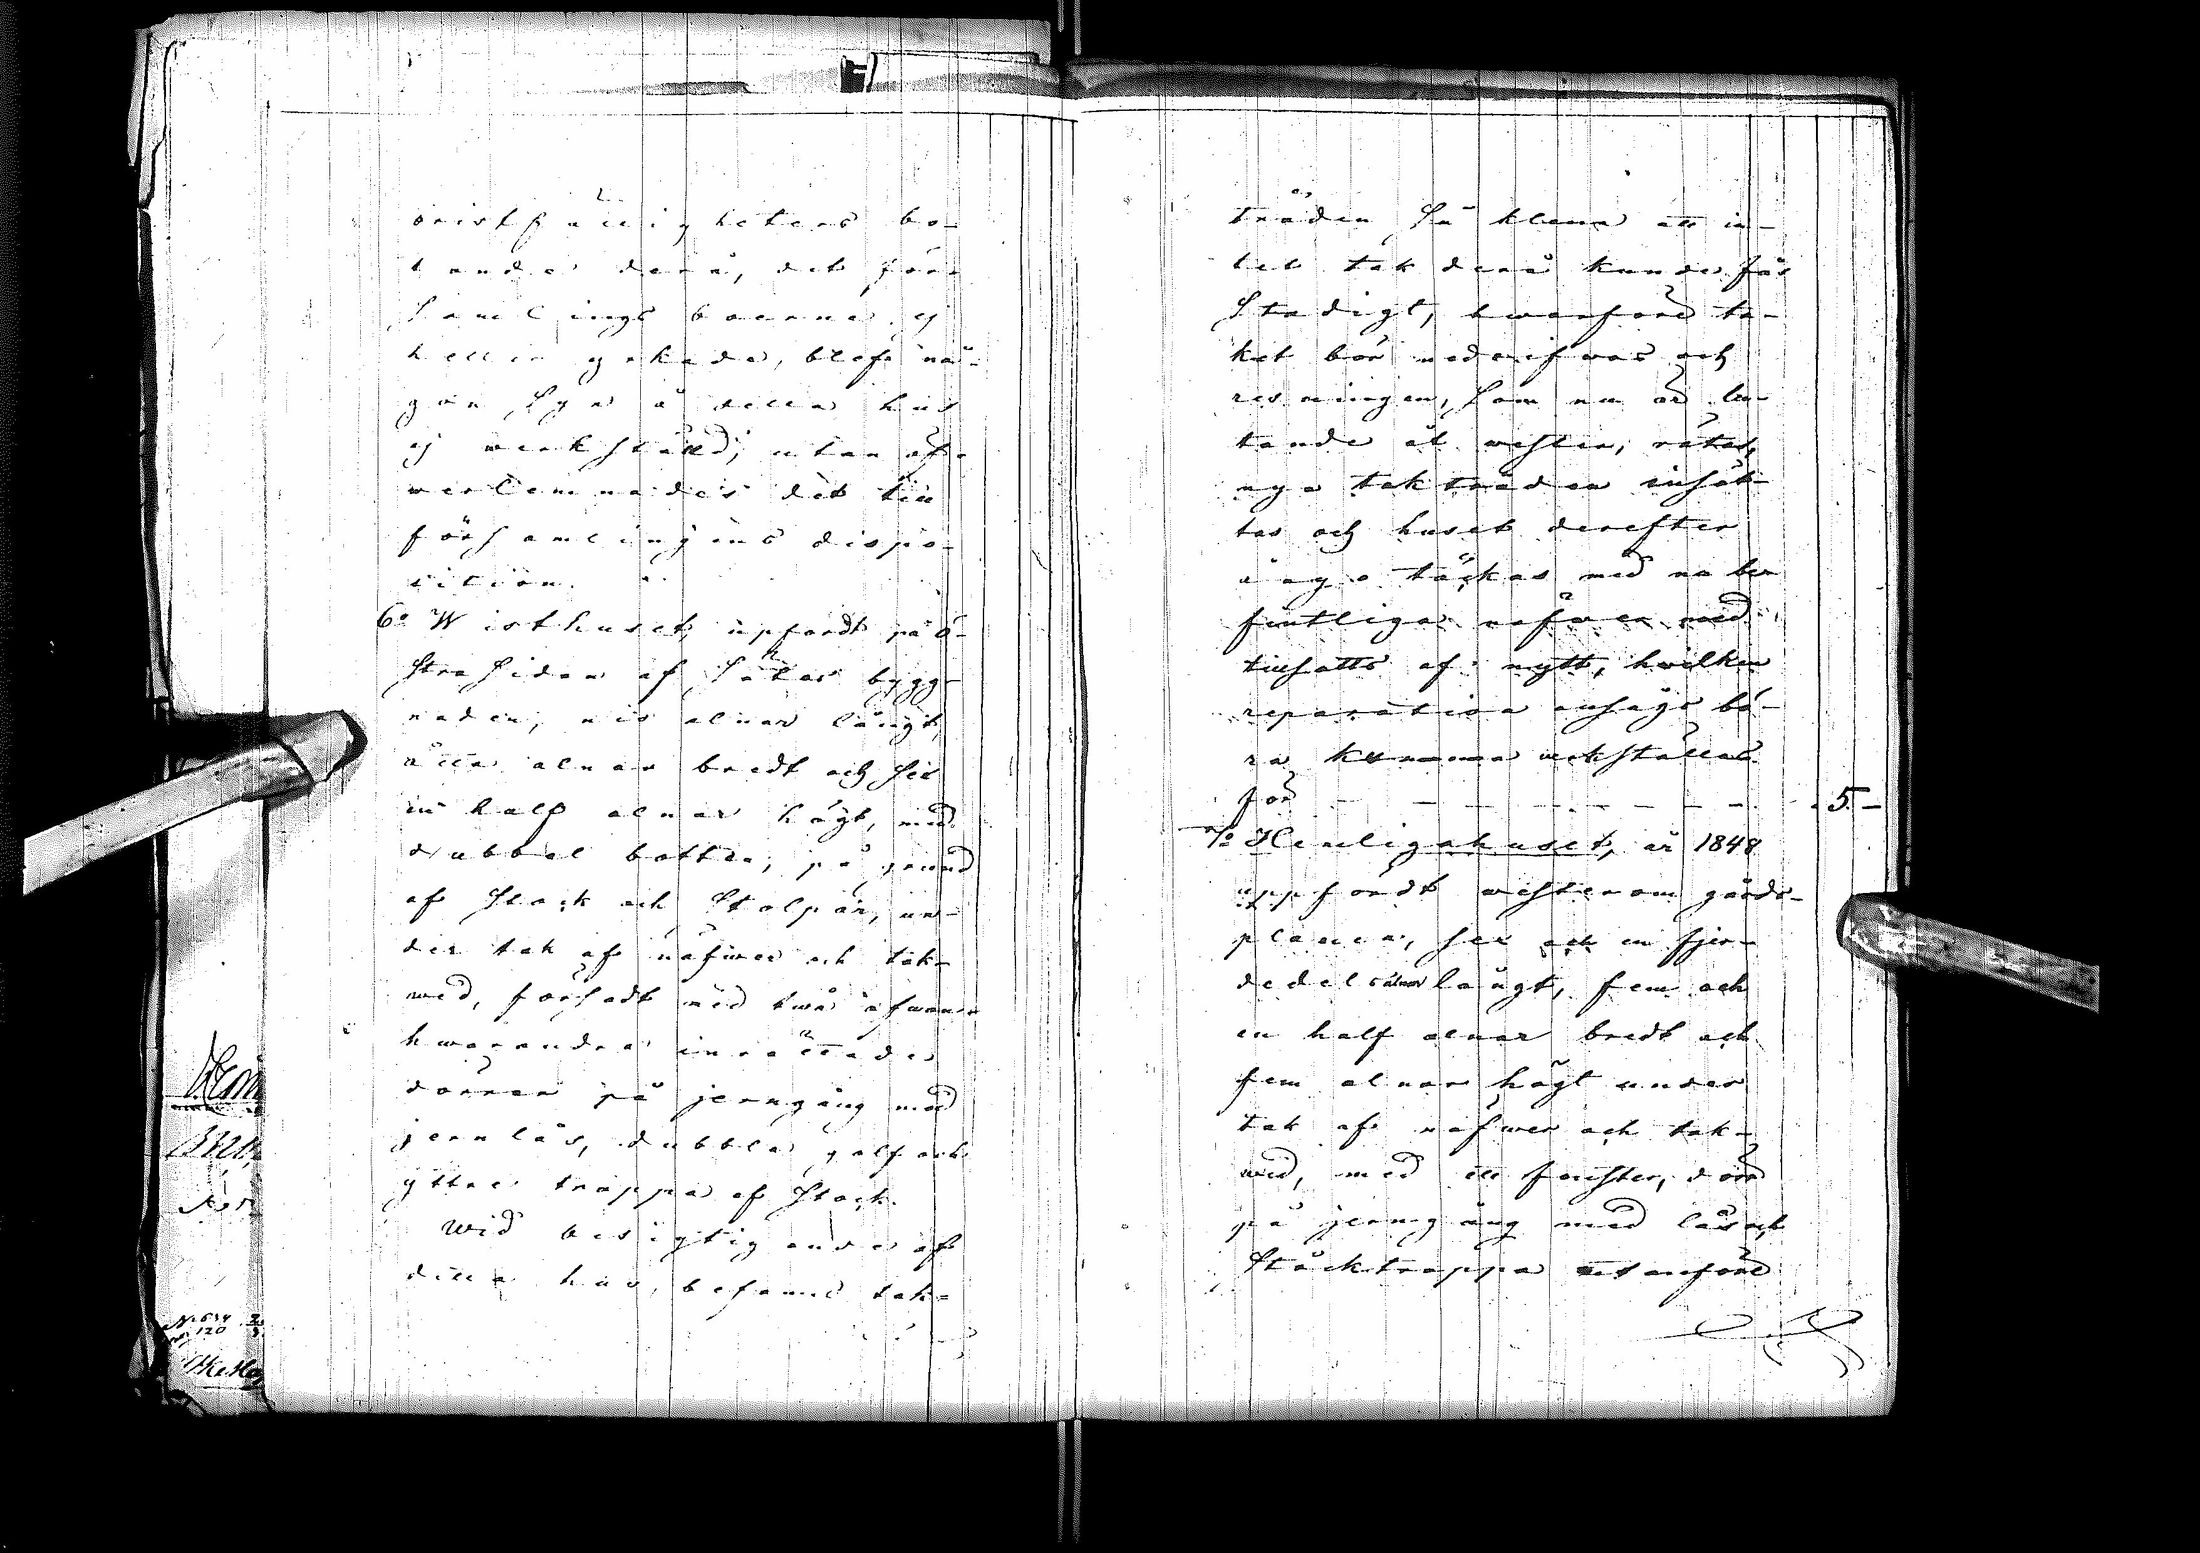 bristfälligheters bo-
tande derå, det för-
samlings boerne ej
heller yrkade, blef nå-
gon Syn å detta hus
ej werkställd; utan öf-
werlemnades det till
församlingens dispo-
sition.
6o Wisthuset, uppfördt på ö-
stra sidan af Sätes bygg-
naden, nio alnar långt,
åtta alnar bredt och sex
en half alnar högt, med
dubbel botten, på grund
af Stock och Stolpar, un-
der tak af näfwer och tak-
wed, försedt med twå ofwan
hwarandra inrättade
dörrar på jerngång med
jernlås, dubbla golf och
yttre trappa af Stock.
Wid besigtigande af
detta hus, befanns tak-
träden så klena att in-
tet tak derå kunde fås
Stadigt, hwarföre ta-
ket bör nedrifwas och
resningen, som nu är lu-
tande åt wester, rätas,
nya takträden insät-
tas och huset derefter
å nyo täckas med na ber
fintliga näfwer med
tillsatts af nytt, hwilken
reparation ansågs bö-
ra kunna werkställas
för — — — — — — — 5 —
7o Hemligahuset, år 1848
uppfördt westerom gårds-
planen, sex och en fjer-
dedels alnar långt, fem och
en half alnar bredt och
fem alnar högt under
tak af näfwer och tak-
wed, med ett fenster, dörr
på jerngång med lås och
Stocktrappa utanföre
No 634
No 120